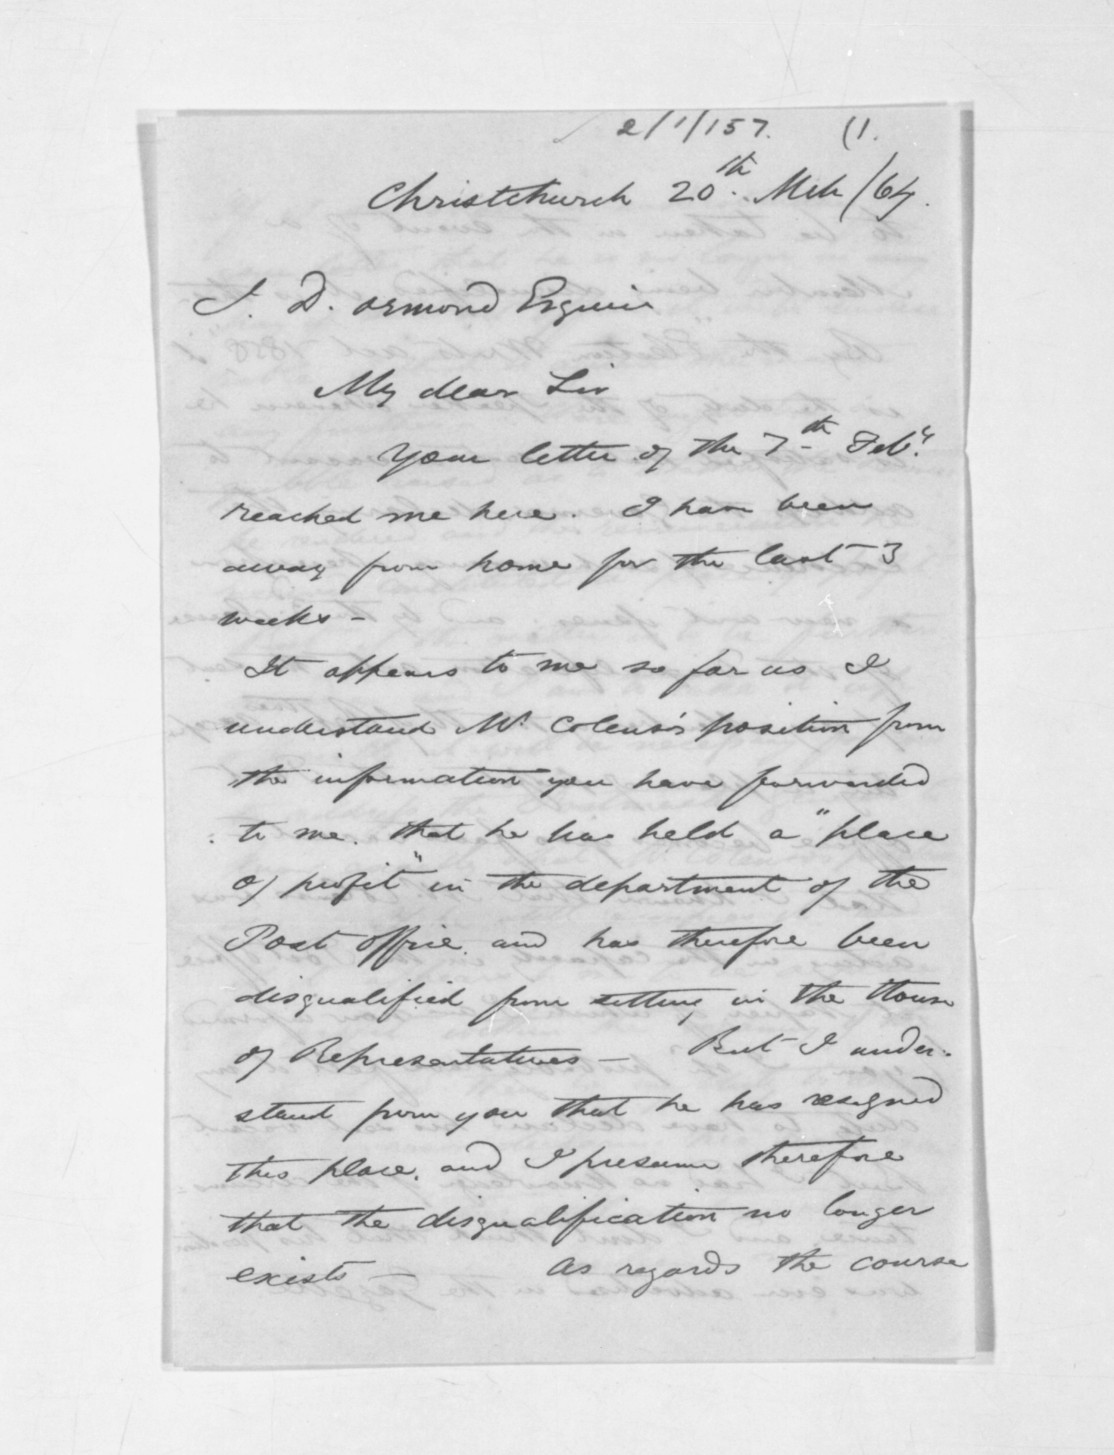 2/1/157. (1.
Christchurch 20th. Mch /64.
J. D. Ormond Esquire
My dear Sir
Your letter of the 7th Feby.
reached me here. I have been
away from home for the last 3
weeks –
It appears to me so far as I
understand Mr Colenso's position from
the information you have forwarded
to me. that he has held a "place
of profit" in the department of the
Post office. and has therefore been
disqualified from sitting in the House
of Representatives – But I under-
stand from you that he has resigned
this place. and I presume therefore
that the disqualification no longer
exists – As regards the course